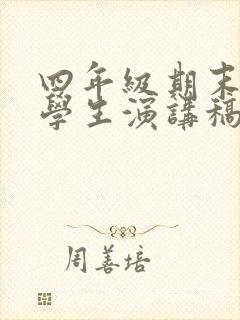 四年級期末
學生演講稿
周善培